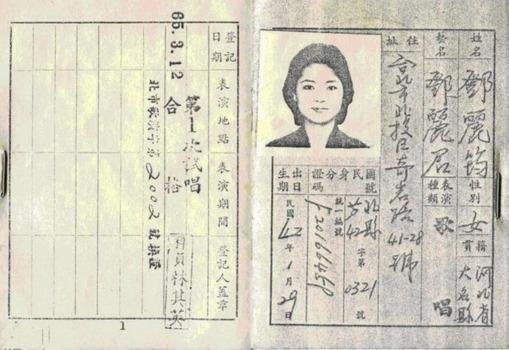 姓名 鄧麗筠
性別 女
籍貫 河北省大名縣
藝名 鄧麗君
表演種類 歌唱
住址 台北市北投區奇岩路41-28號
國民身分證號碼
字第 0321 號
統一編號
出生日期 民國42年1月29日
登記日期
表演地點
表演期間
登記人蓋章
65.3.12
第1次試唱
合格
2002 號
林其英
1